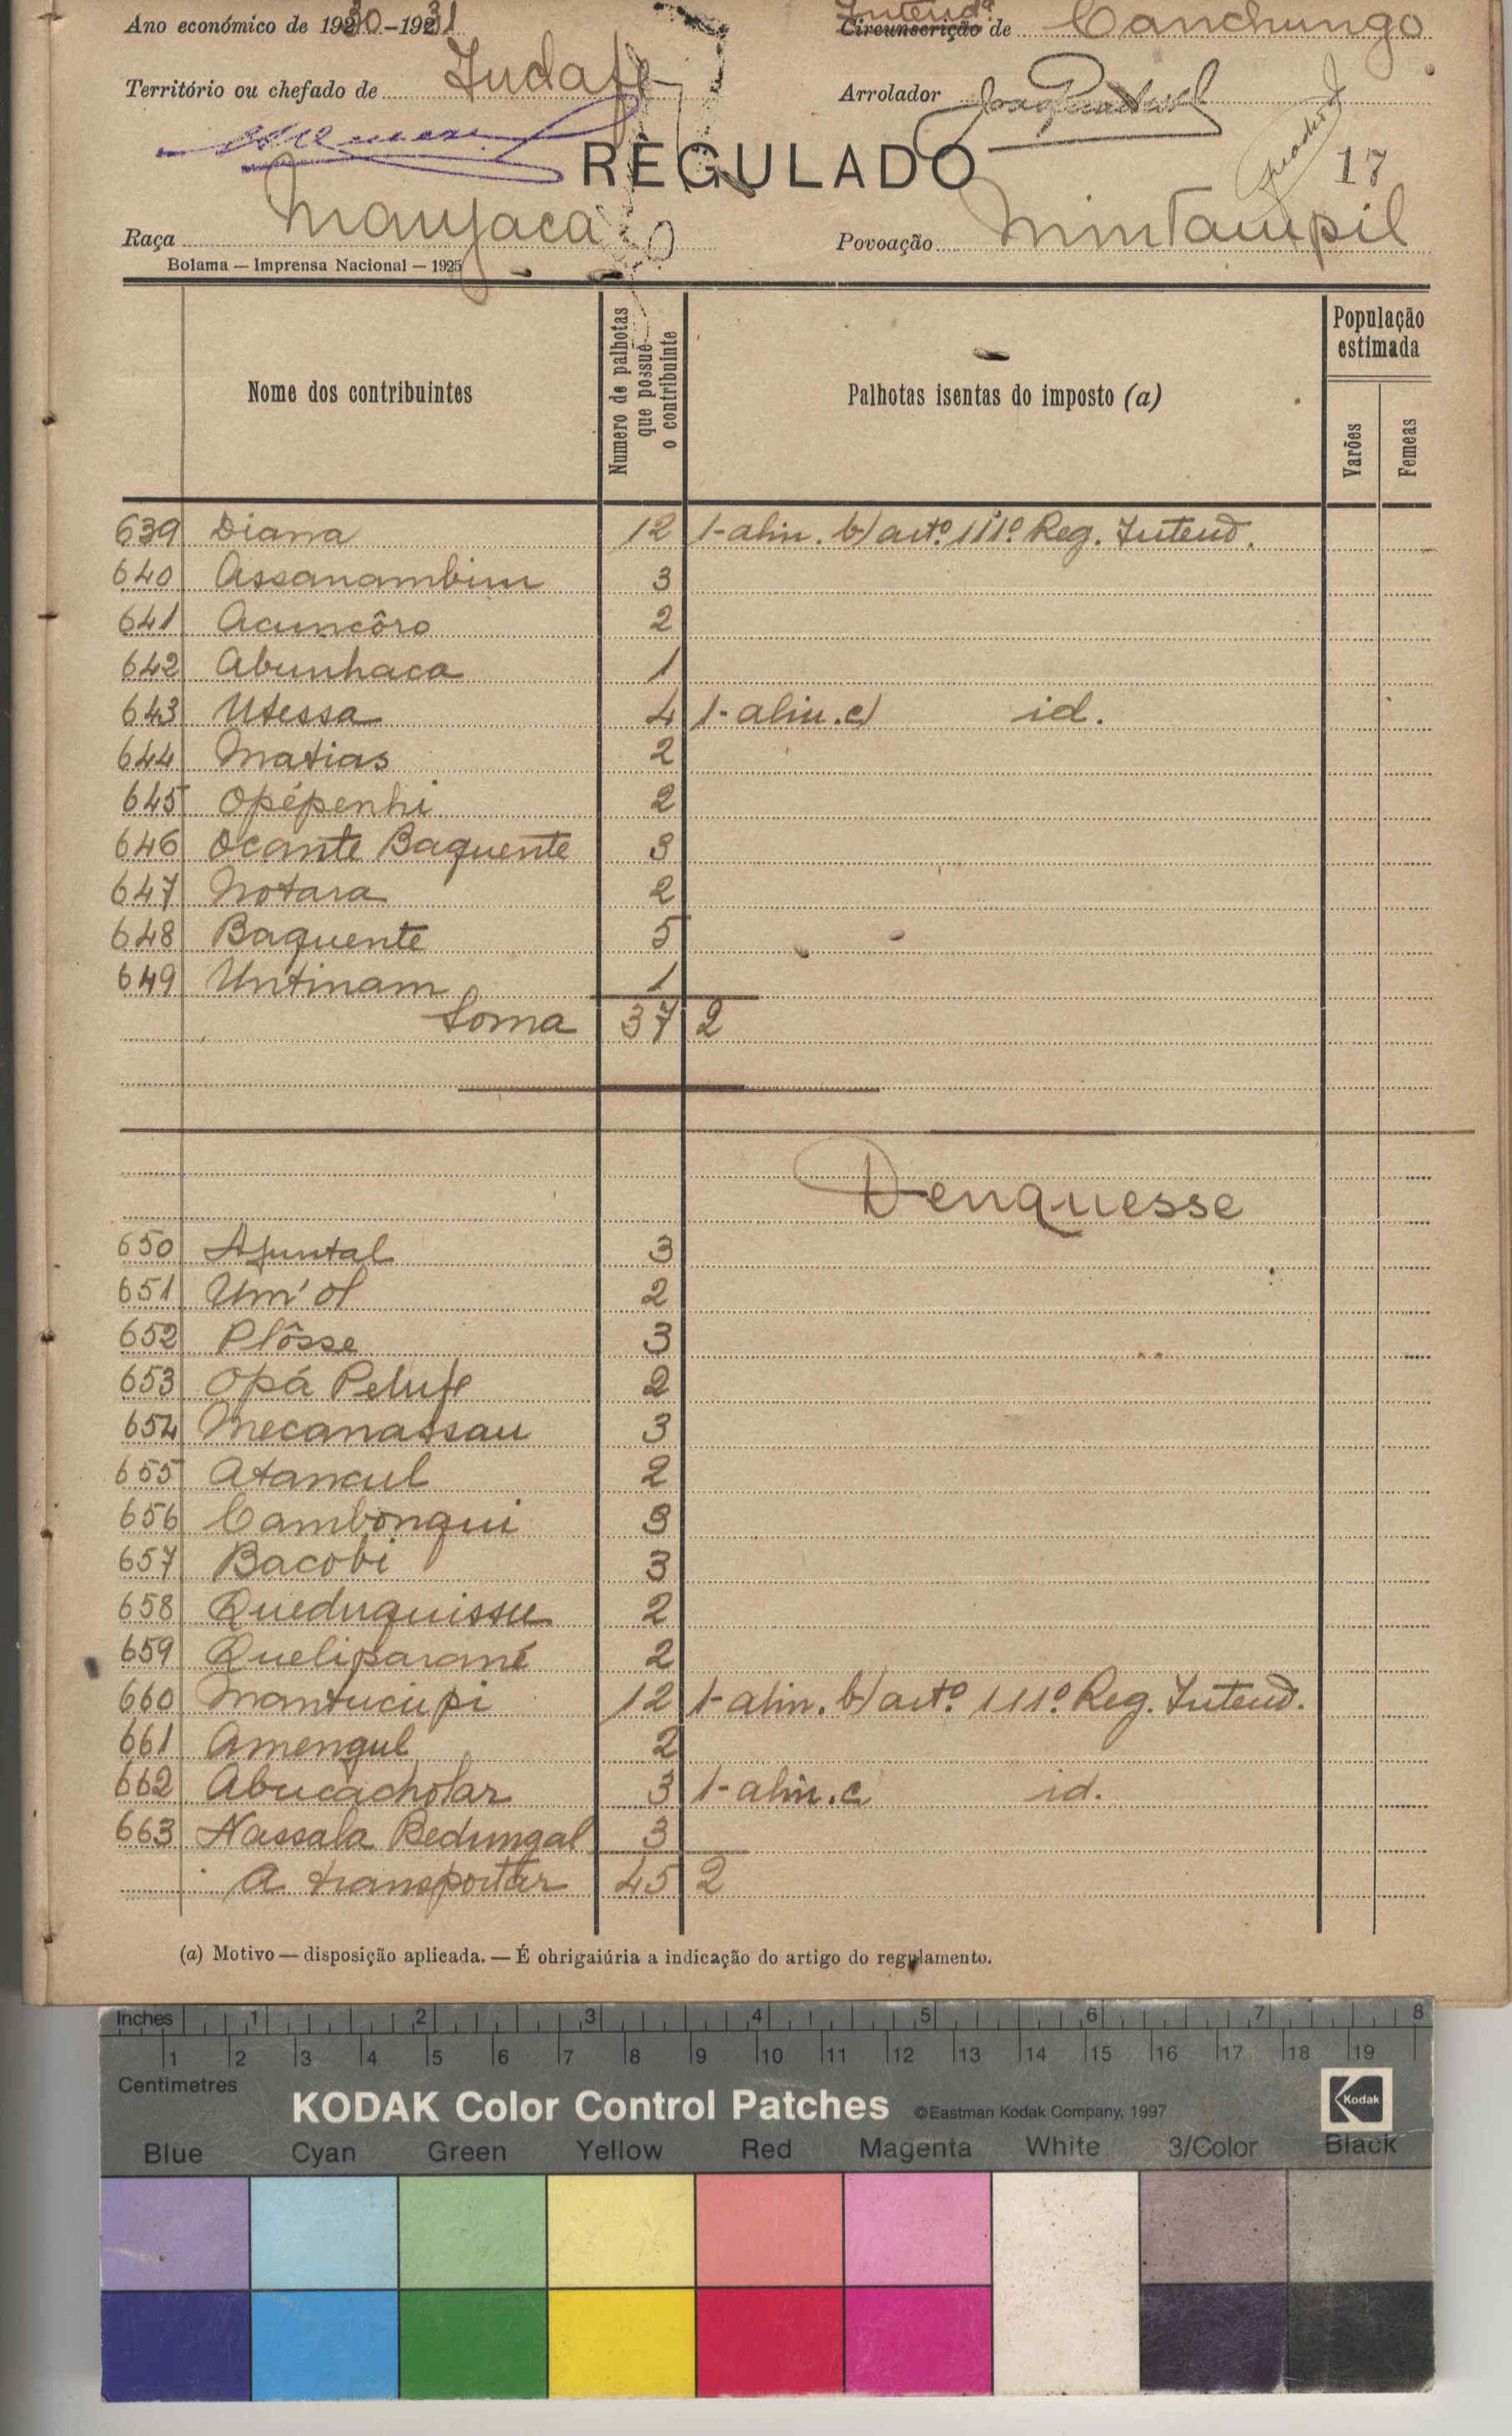 Ano económico de 1930-1931
Intendª Circunscrição de Canchungo
Território ou chefado de Judafe
Arrolador
REGULADO
17
Raça Manjaca
Povoação Mintampil
Bolama — Imprensa Nacional — 1925
Nome dos contribuintes
Numero de palhotas que possuè o contribuinte
Palhotas isentas do imposto (a)
População estimada
Varões
Femeas
639 Diana 12 1-alin. b) artº. 111º Reg. Intend.
640 Assanambim 3
641 Acumcôro 2
642 Abunhaca 1
643 Utessa 4 1-alin.c) id.
644 Matias 2
645 Opépenhi 2
646 Ocante Baquente 3
647 Notara 2
648 Baquente 5
649 Untinam 1
Soma 37 2
Denquesse
650 Ajuntal 3
651 Um'ol 2
652 Plôsse 3
653 Opá Pelufe 2
654 Mecanassau 3
655 Atancul 2
656 Cambonqui 3
657 Bacobi 3
658 Queduquissu 2
659 Queliparamé 2
660 Mantucupi 12 1-alin. b) artº. 111º Reg. Intend.
661 Amengul 2
662 Abucacholar 3 1-alin.c id.
663 Nassala Bedungal 3
A transportar 45 2
(a) Motivo — disposição aplicada. — É obrigaiúria a indicação do artigo do regulamento.
Inches 1 2 3 4 5 6 7 8
1 2 3 4 5 6 7 8 9 10 11 12 13 14 15 16 17 18 19
Centimetres
KODAK Color Control Patches ©Eastman Kodak Company, 1997 Kodak
Blue Cyan Green Yellow Red Magenta White 3/Color Black